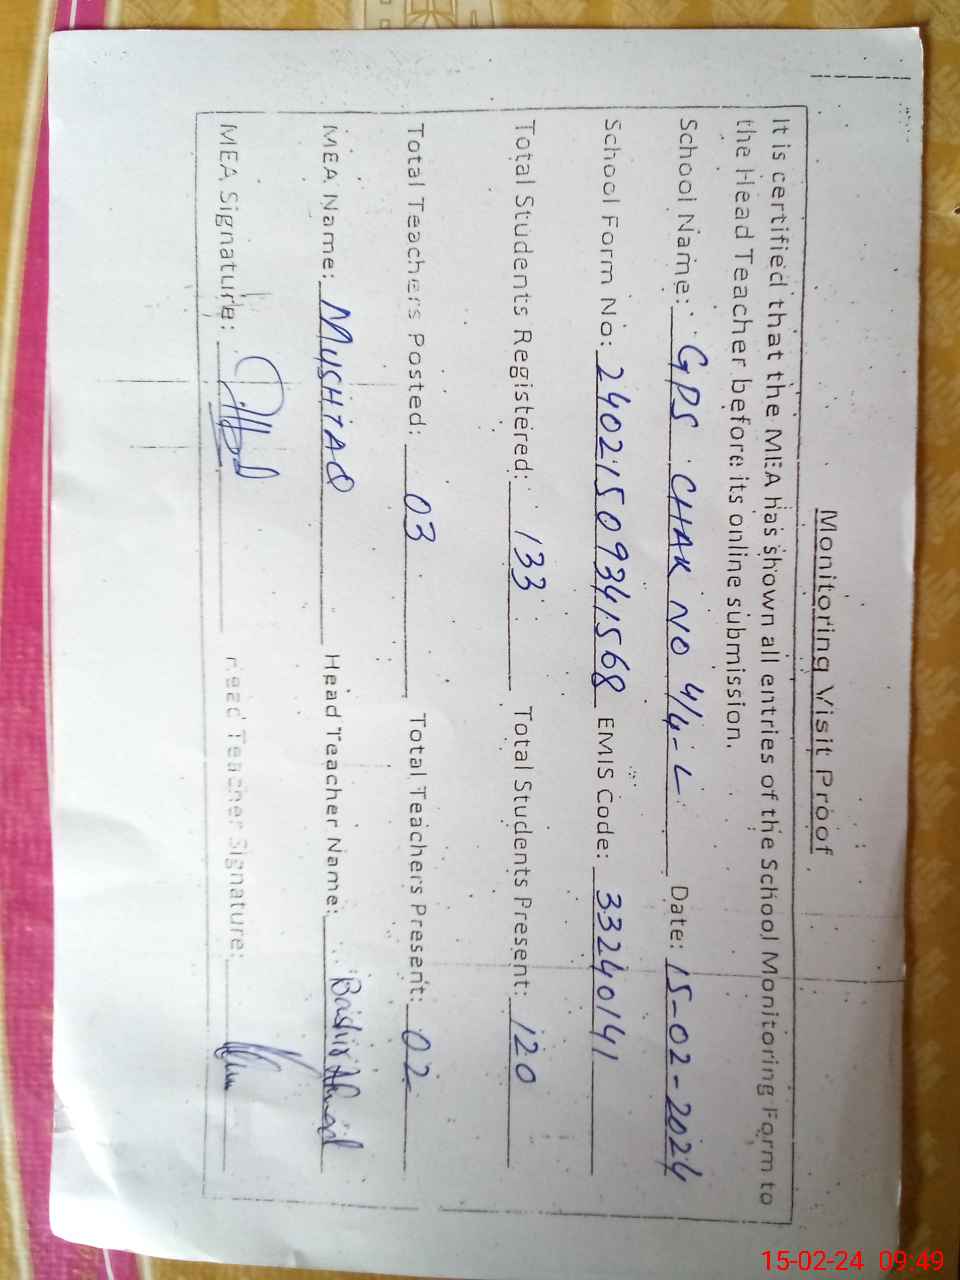 Monitoring Visit Proof
It is certified that the MEA has shown all entries of the School Monitoring Form to
the Head Teacher before its online submission.
School Name: GPS CHAK NO 4/4-L Date: 15-02-2024
School Form No: 24021509341568 EMIS Code: 33240141
Total Students Registered: 133 Total Students Present: 120
Total Teachers Posted: 03 Total Teachers Present: 02
MEA Name: MUSHTAQ Head Teacher Name: Bashir Ahmad
MEA Signature: Head Teacher Signature:
15-02-24 09:49